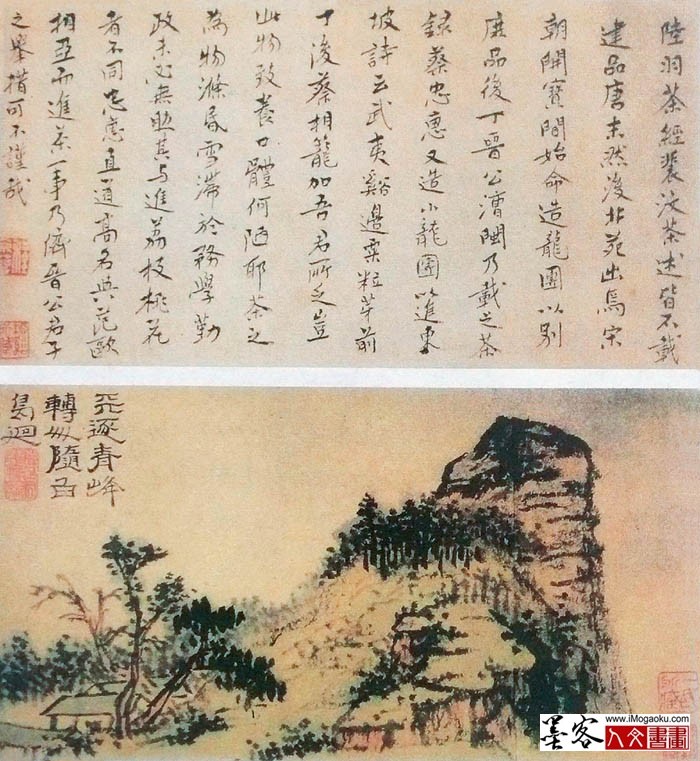 陸羽茶經裴汶茶述皆不載
建品唐末然後北苑出焉宋
朝開寶間始命造龍團以別
庶品後丁晉公漕閩乃載之茶
錄蔡忠惠又造小龍團以進東
坡詩云武夷谿邊粟粒芽前
丁後蔡相籠加吾君所乏豈
此物致養口體何陋耶茶之
為物滌昏雪滯於務學勤
政未必無助其与進荔枝桃花
者不同忠惠直道高名與范歐
相亞而進茶一事乃儕晉公君子
之舉措可不謹哉
逐青峰
轉隨白
鳥迴
墨客
www.iMogaoku.com
人文書畫